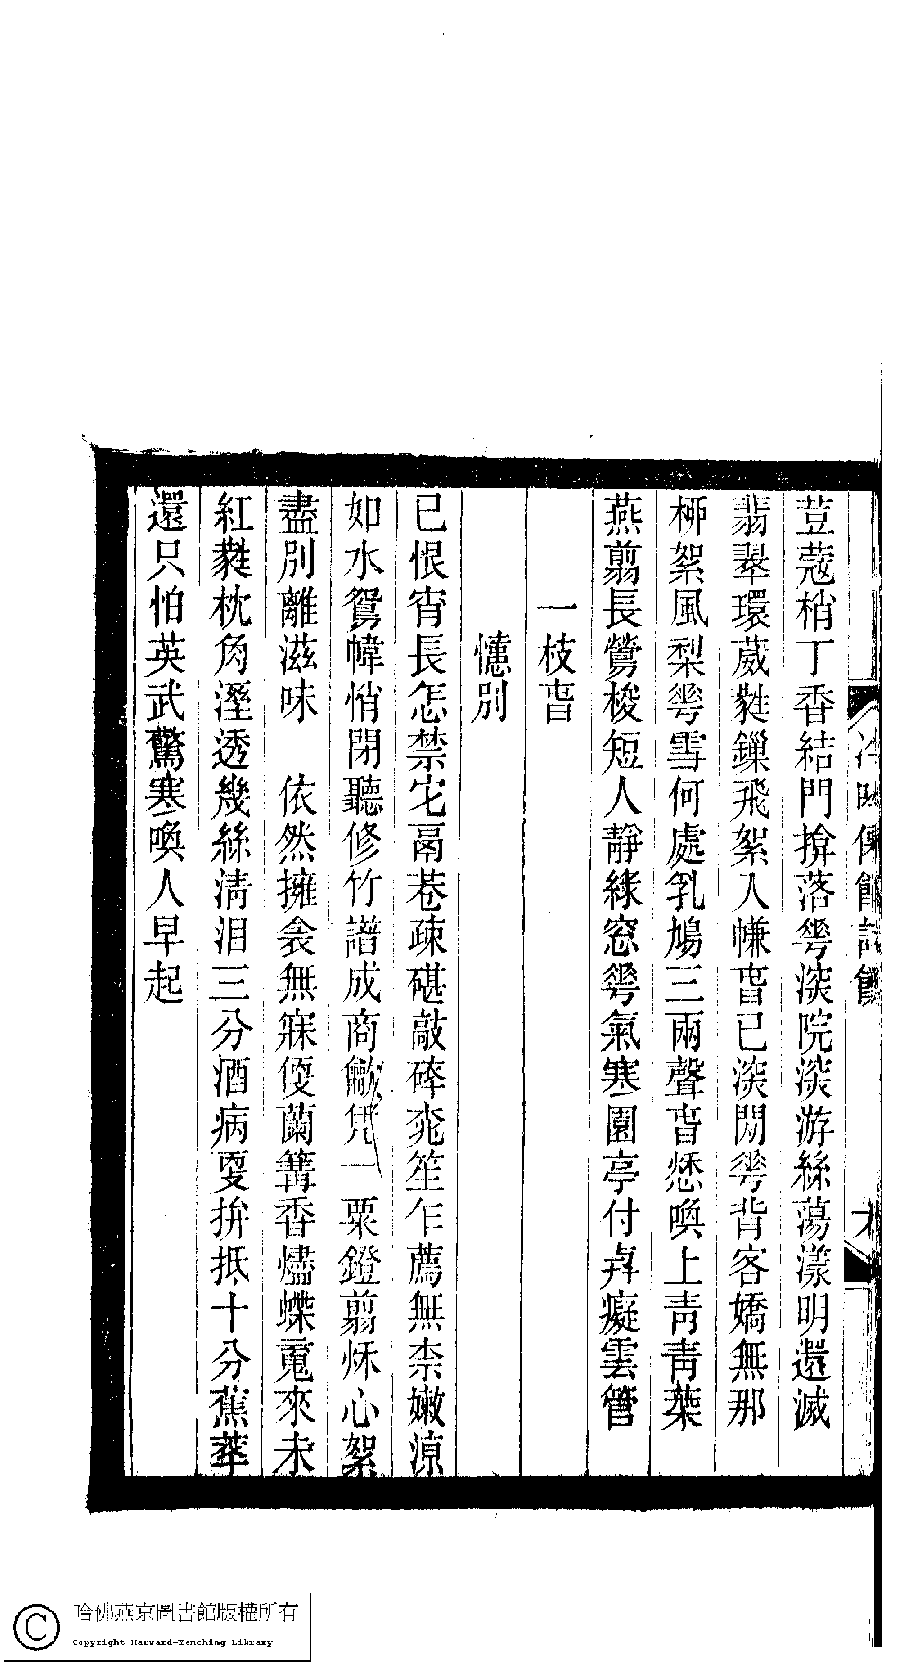 荳蔻梢丁香結門揜落蕚深院深游絲蕩漾明還滅
翡翠環葳蕤鏁飛絮入㡘旾已深閒蕚背客嬌無那
桺絮風梨蕚雪何處乳鳩三兩聲旾愁喚上靑靑葉
燕翦長鶯梭短人靜綠窓蕚氣寒園亭付與癡雲管
一枝旾
憶別
已恨宵長怎禁宅鬲巷疎碪敲碎兜笙乍薦無柰嫩涼
如水鴛幃悄閉聽修竹譜成商㱃凭一粟鐙翦秌心絮
盡別離滋味　依然擁衾無寐便蘭篝香燼蝶䰟來未
紅蕤枕角溼透幾絲淸淚三分酒病㪅拚抵十分蕉萃
還只怕英武驚寒喚人早起
館詞
哈佛燕京圖書館版權所有
Copyright Harvard-Yenching Library